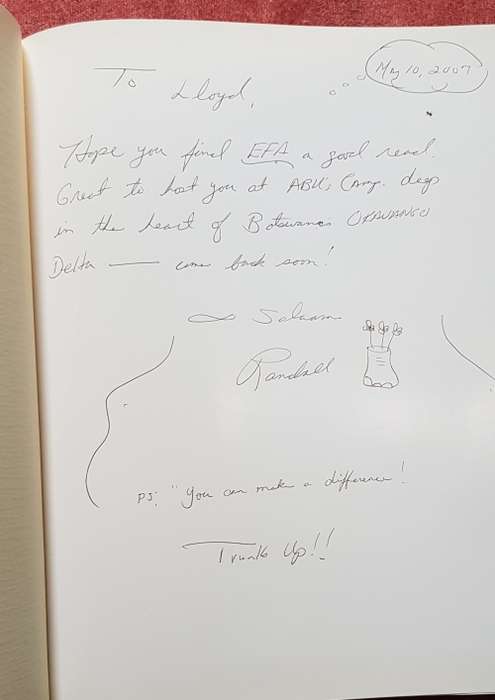 May 10, 2007
To Lloyd,
Hope you find EFA a good read.
Great to host you at ABU's Camp. deep
in the heart of Botswanas OKAVANGO
Delta — come back soon!
∞ Salaam
Randall
PS: "You can make a difference!
Trunks Up!!